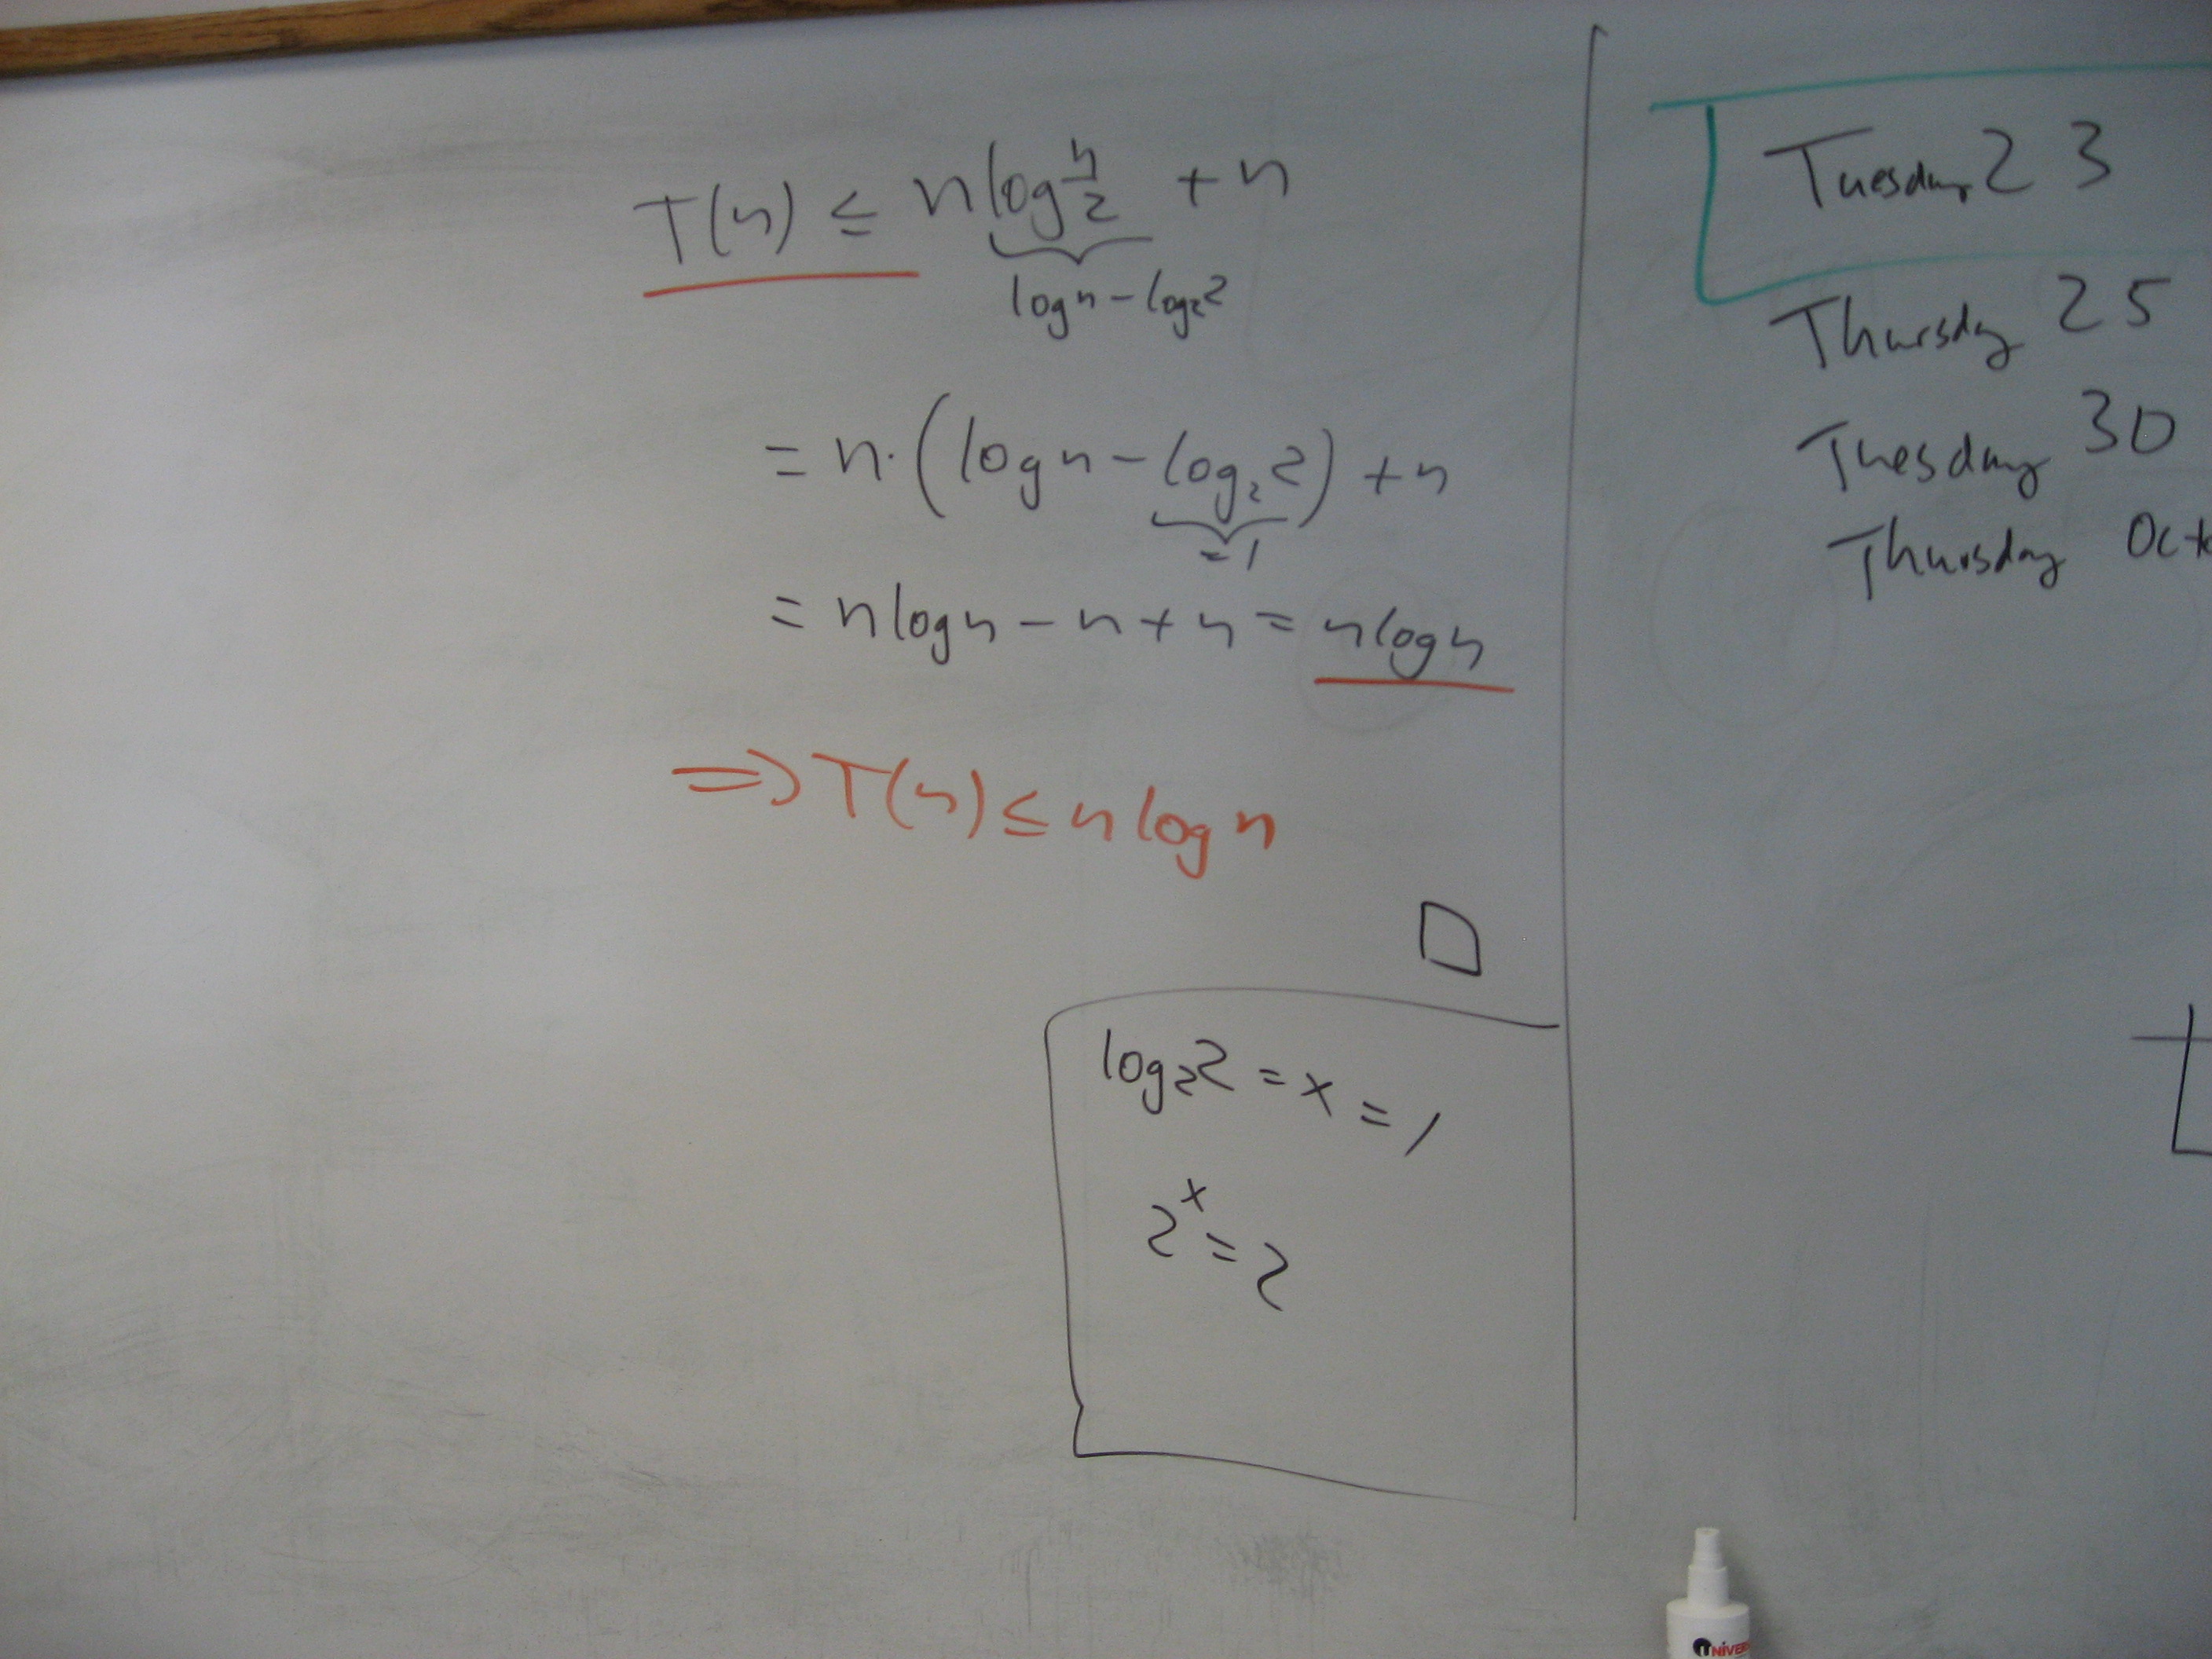 T(n) ≤ n log n/2 + n
log n - log₂2
= n·(log n - log₂2) + n
= 1
= n log n - n + n = n log n
⇒ T(n) ≤ n log n
log₂2 = x = 1
2ˣ = 2
Tuesday 23
Thursday 25
Tuesday 30
Thursday Oct